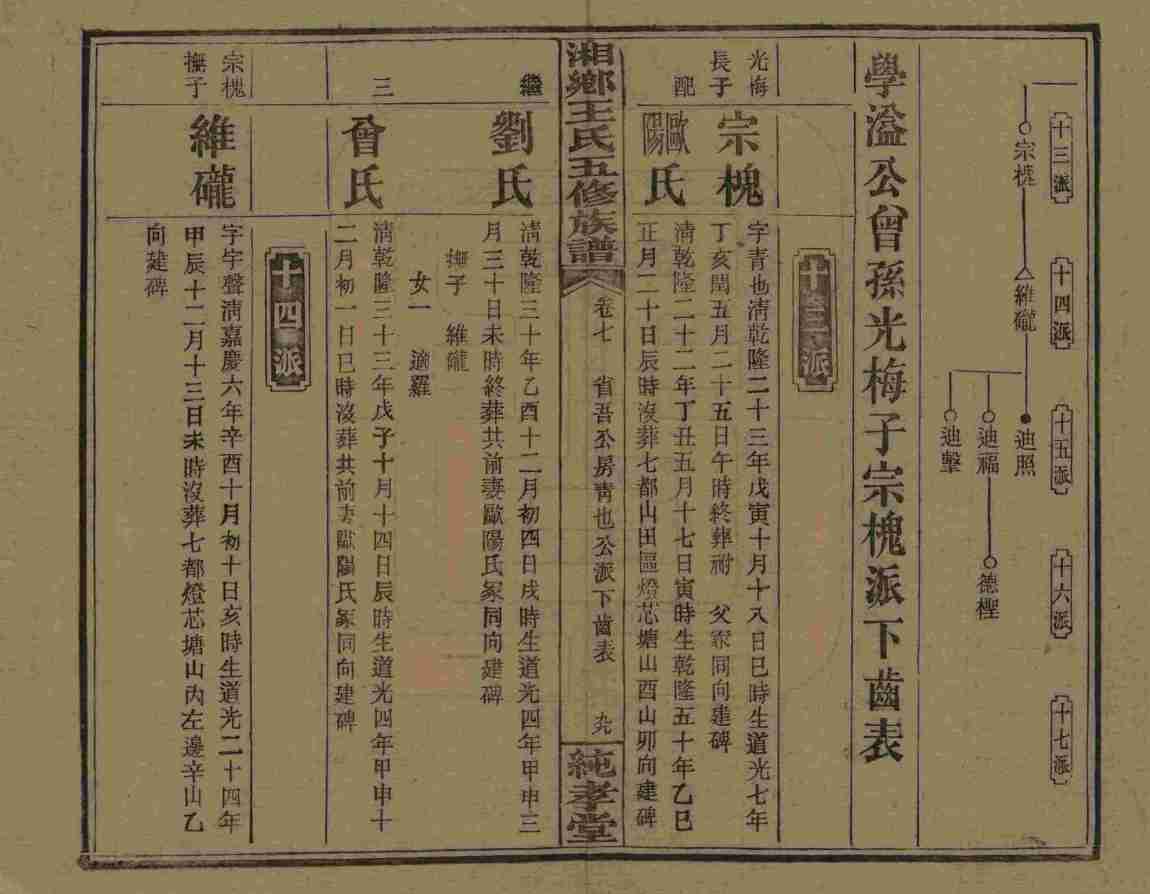 十三派
十四派
十五派
十六派
十七派
宗槐
維礲
迪照
迪福
迪擊
德檉
學溢公曾孫光梅子宗槐派下齒表
十三派
光梅長子
宗槐
字青也清乾隆二十三年戊寅十月十八日巳時生道光七年
丁亥閏五月二十五日午時終葬祔 父冢同向建碑
配
歐陽氏
清乾隆二十二年丁丑五月十七日寅時生乾隆五十年乙巳
正月二十日辰時沒葬七都山田區燈芯塘山酉山卯向建碑
湘鄉王氏五修族譜
卷七 省吾公房青也公派下齒表 九
純孝堂
繼
劉氏
清乾隆三十年乙酉十二月初四日戌時生道光四年甲申三
月三十日未時終葬共前妻歐陽氏冢同向建碑
撫子 維礲
女一 適羅
三
曾氏
清乾隆三十三年戊子十月十四日辰時生道光四年甲申十
二月初一日巳時沒葬共前妻歐陽氏冢同向建碑
十四派
宗槐撫子
維礲
字宇聲清嘉慶六年辛酉十月初十日亥時生道光二十四年
甲辰十二月十三日未時沒葬七都燈芯塘山內左邊辛山乙
向建碑